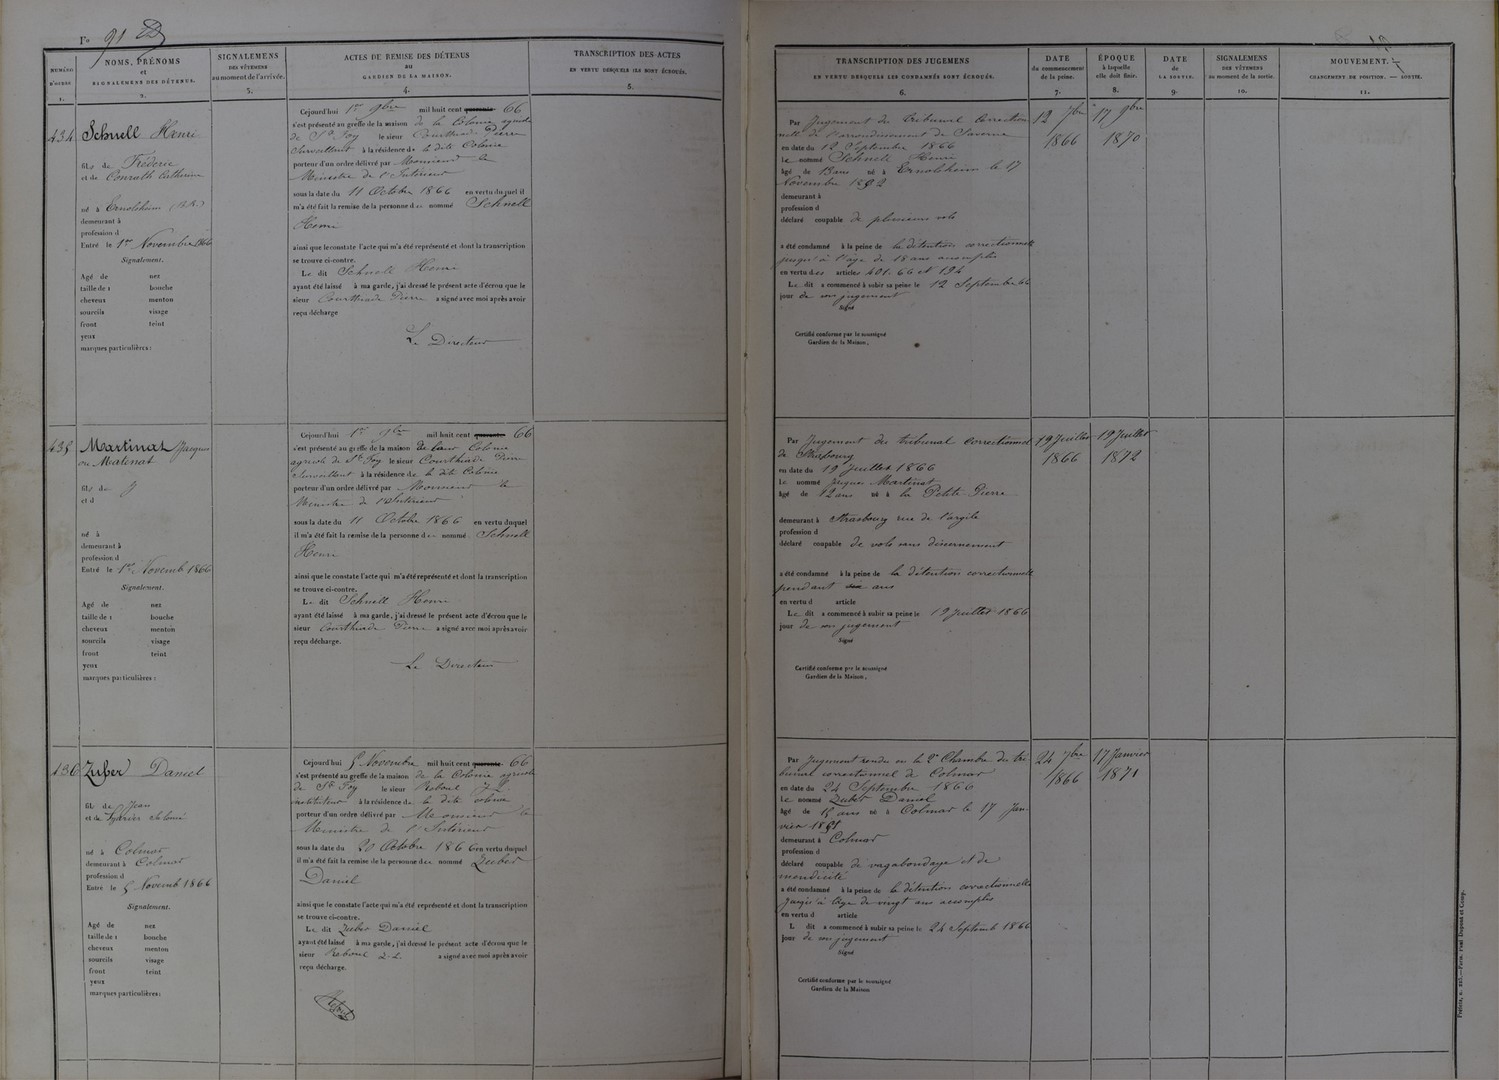 Fo 91
NUMÉRO D'ORDRE 1.
NOMS, PRÉNOMS et SIGNALEMENS DES DÉTENUS. 2.
SIGNALEMENS DES VÊTEMENS au moment de l'arrivée. 3.
ACTES DE REMISE DES DÉTENUS AU GARDIEN DE LA MAISON. 4.
TRANSCRIPTION DES ACTES EN VERTU DESQUELS ILS SONT ÉCROUÉS. 5.
TRANSCRIPTION DES JUGEMENS EN VERTU DESQUELS LES CONDAMNÉS SONT ÉCROUÉS. 6.
DATE du commencement de la peine. 7.
ÉPOQUE à laquelle elle doit finir. 8.
DATE de LA SORTIE. 9.
SIGNALEMENS DES VÊTEMENS au moment de la sortie. 10.
MOUVEMENT. CHANGEMENT DE POSITION. — SORTIE. 11.
434
Schnell Henri
fils de Fréderic
et de Conrath Catherine
né à Ernolsheim (B.R.)
demeurant à
profession d
Entré le 1er Novembre 1866
Signalement.
Agé de nez
taille de 1 bouche
cheveux menton
sourcils visage
front teint
yeux
marques particulières :
Cejourd'hui 1er 9bre mil huit cent quarante 66
s'est présenté au greffe de la maison de la Colonie agricole
de Ste Foy le sieur Courthiade Pierre
Surveillant à la résidence de la dite Colonie
porteur d'un ordre délivré par Monsieur le
Ministre de l'Intérieur
sous la date du 11 Octobre 1866 en vertu duquel il
m'a été fait la remise de la personne de nommé Schnell
Henri
ainsi que le constate l'acte qui m'a été représenté et dont la transcription
se trouve ci-contre.
Le dit Schnell Henri
ayant été laissé à ma garde, j'ai dressé le présent acte d'écrou que le
sieur Courthiade Pierre a signé avec moi après avoir
reçu décharge
Le Directeur
Par Jugement du tribunal Correction
nelle de l'arrondissement de Saverne
en date du 12 Septembre 1866
Le nommé Schnell Henri
âgé de 13 ans né à Ernolsheim le 17
Novembre 1852
demeurant à
profession d
déclaré coupable de plusieurs vols
a été condamné à la peine de la détention correctionnelle
jusqu'à l'âge de 18 ans accomplis
en vertu des articles 401. 66 et 194
Le dit a commencé à subir sa peine le 12 Septembre 66
jour de son jugement
Signé
Certifié conforme par le soussigné
Gardien de la Maison,
12 7bre 1866
17 9bre 1870
435
Martinat Jacques
ou Matenat
fils de
et d
né à
demeurant à
profession d
Entré le 1er Novemb 1866
Signalement.
Agé de nez
taille de 1 bouche
cheveux menton
sourcils visage
front teint
yeux
marques particulières :
Cejourd'hui 1er 9bre mil huit cent quarante 66
s'est présenté au greffe de la maison de la Colonie
agricole de Ste Foy le sieur Courthiade Pierre
Surveillant à la résidence de la dite Colonie
porteur d'un ordre délivré par Monsieur le
Ministre de l'Intérieur
sous la date du 11 Octobre 1866 en vertu duquel
il m'a été fait la remise de la personne de nommé Schnell
Henri
ainsi que le constate l'acte qui m'a été représenté et dont la transcription
se trouve ci-contre.
Le dit Schnell Henri
ayant été laissé à ma garde, j'ai dressé le présent acte d'écrou que le
sieur Courthiade Pierre a signé avec moi après avoir
reçu décharge.
Le Directeur
Par Jugement du tribunal correctionnel
de Strasbourg
en date du 19 Juillet 1866
Le nommé Jacques Martinat
âgé de 12 ans né à la Petite Pierre
demeurant à Strasbourg rue de l'argile
profession d
déclaré coupable de vols sans discernement
a été condamné à la peine de la détention correctionnelle
pendant six ans
en vertu d article
Le dit a commencé à subir sa peine le 19 Juillet 1866
jour de son jugement
Signé
Certifié conforme par le soussigné
Gardien de la Maison,
19 Juillet 1866
19 Juillet 1872
436
Zuber Daniel
fils de Jean
et de Salomé
né à Colmar
demeurant à Colmar
profession d
Entré le 5 Novemb 1866
Signalement.
Agé de nez
taille de 1 bouche
cheveux menton
sourcils visage
front teint
yeux
marques particulières :
Cejourd'hui 5 Novembre mil huit cent quarante 66
s'est présenté au greffe de la maison de la Colonie agricole
de Ste Foy le sieur Reboul
instituteur à la résidence de la dite colonie
porteur d'un ordre délivré par Monsieur le
Ministre de l'Intérieur
sous la date du 20 Octobre 1866 en vertu duquel
il m'a été fait la remise de la personne de nommé Zuber
Daniel
ainsi que le constate l'acte qui m'a été représenté et dont la transcription
se trouve ci-contre.
Le dit Zuber Daniel
ayant été laissé à ma garde, j'ai dressé le présent acte d'écrou que le
sieur Reboul a signé avec moi après avoir
reçu décharge.
Par Jugement rendu en la 2e Chambre du tri
bunal correctionnel de Colmar
en date du 24 Septembre 1866
Le nommé Zuber Daniel
âgé de 15 ans né à Colmar le 17 Jan-
vier 1851
demeurant à Colmar
profession d
déclaré coupable de vagabondage et de
mendicité
a été condamné à la peine de la détention correctionnelle
jusqu'à l'âge de vingt ans accomplis
en vertu d article
L dit a commencé à subir sa peine le 24 Septemb 1866
jour de son jugement
Signé
Certifié conforme par le soussigné
Gardien de la Maison
24 7bre 1866
17 Janvier 1871